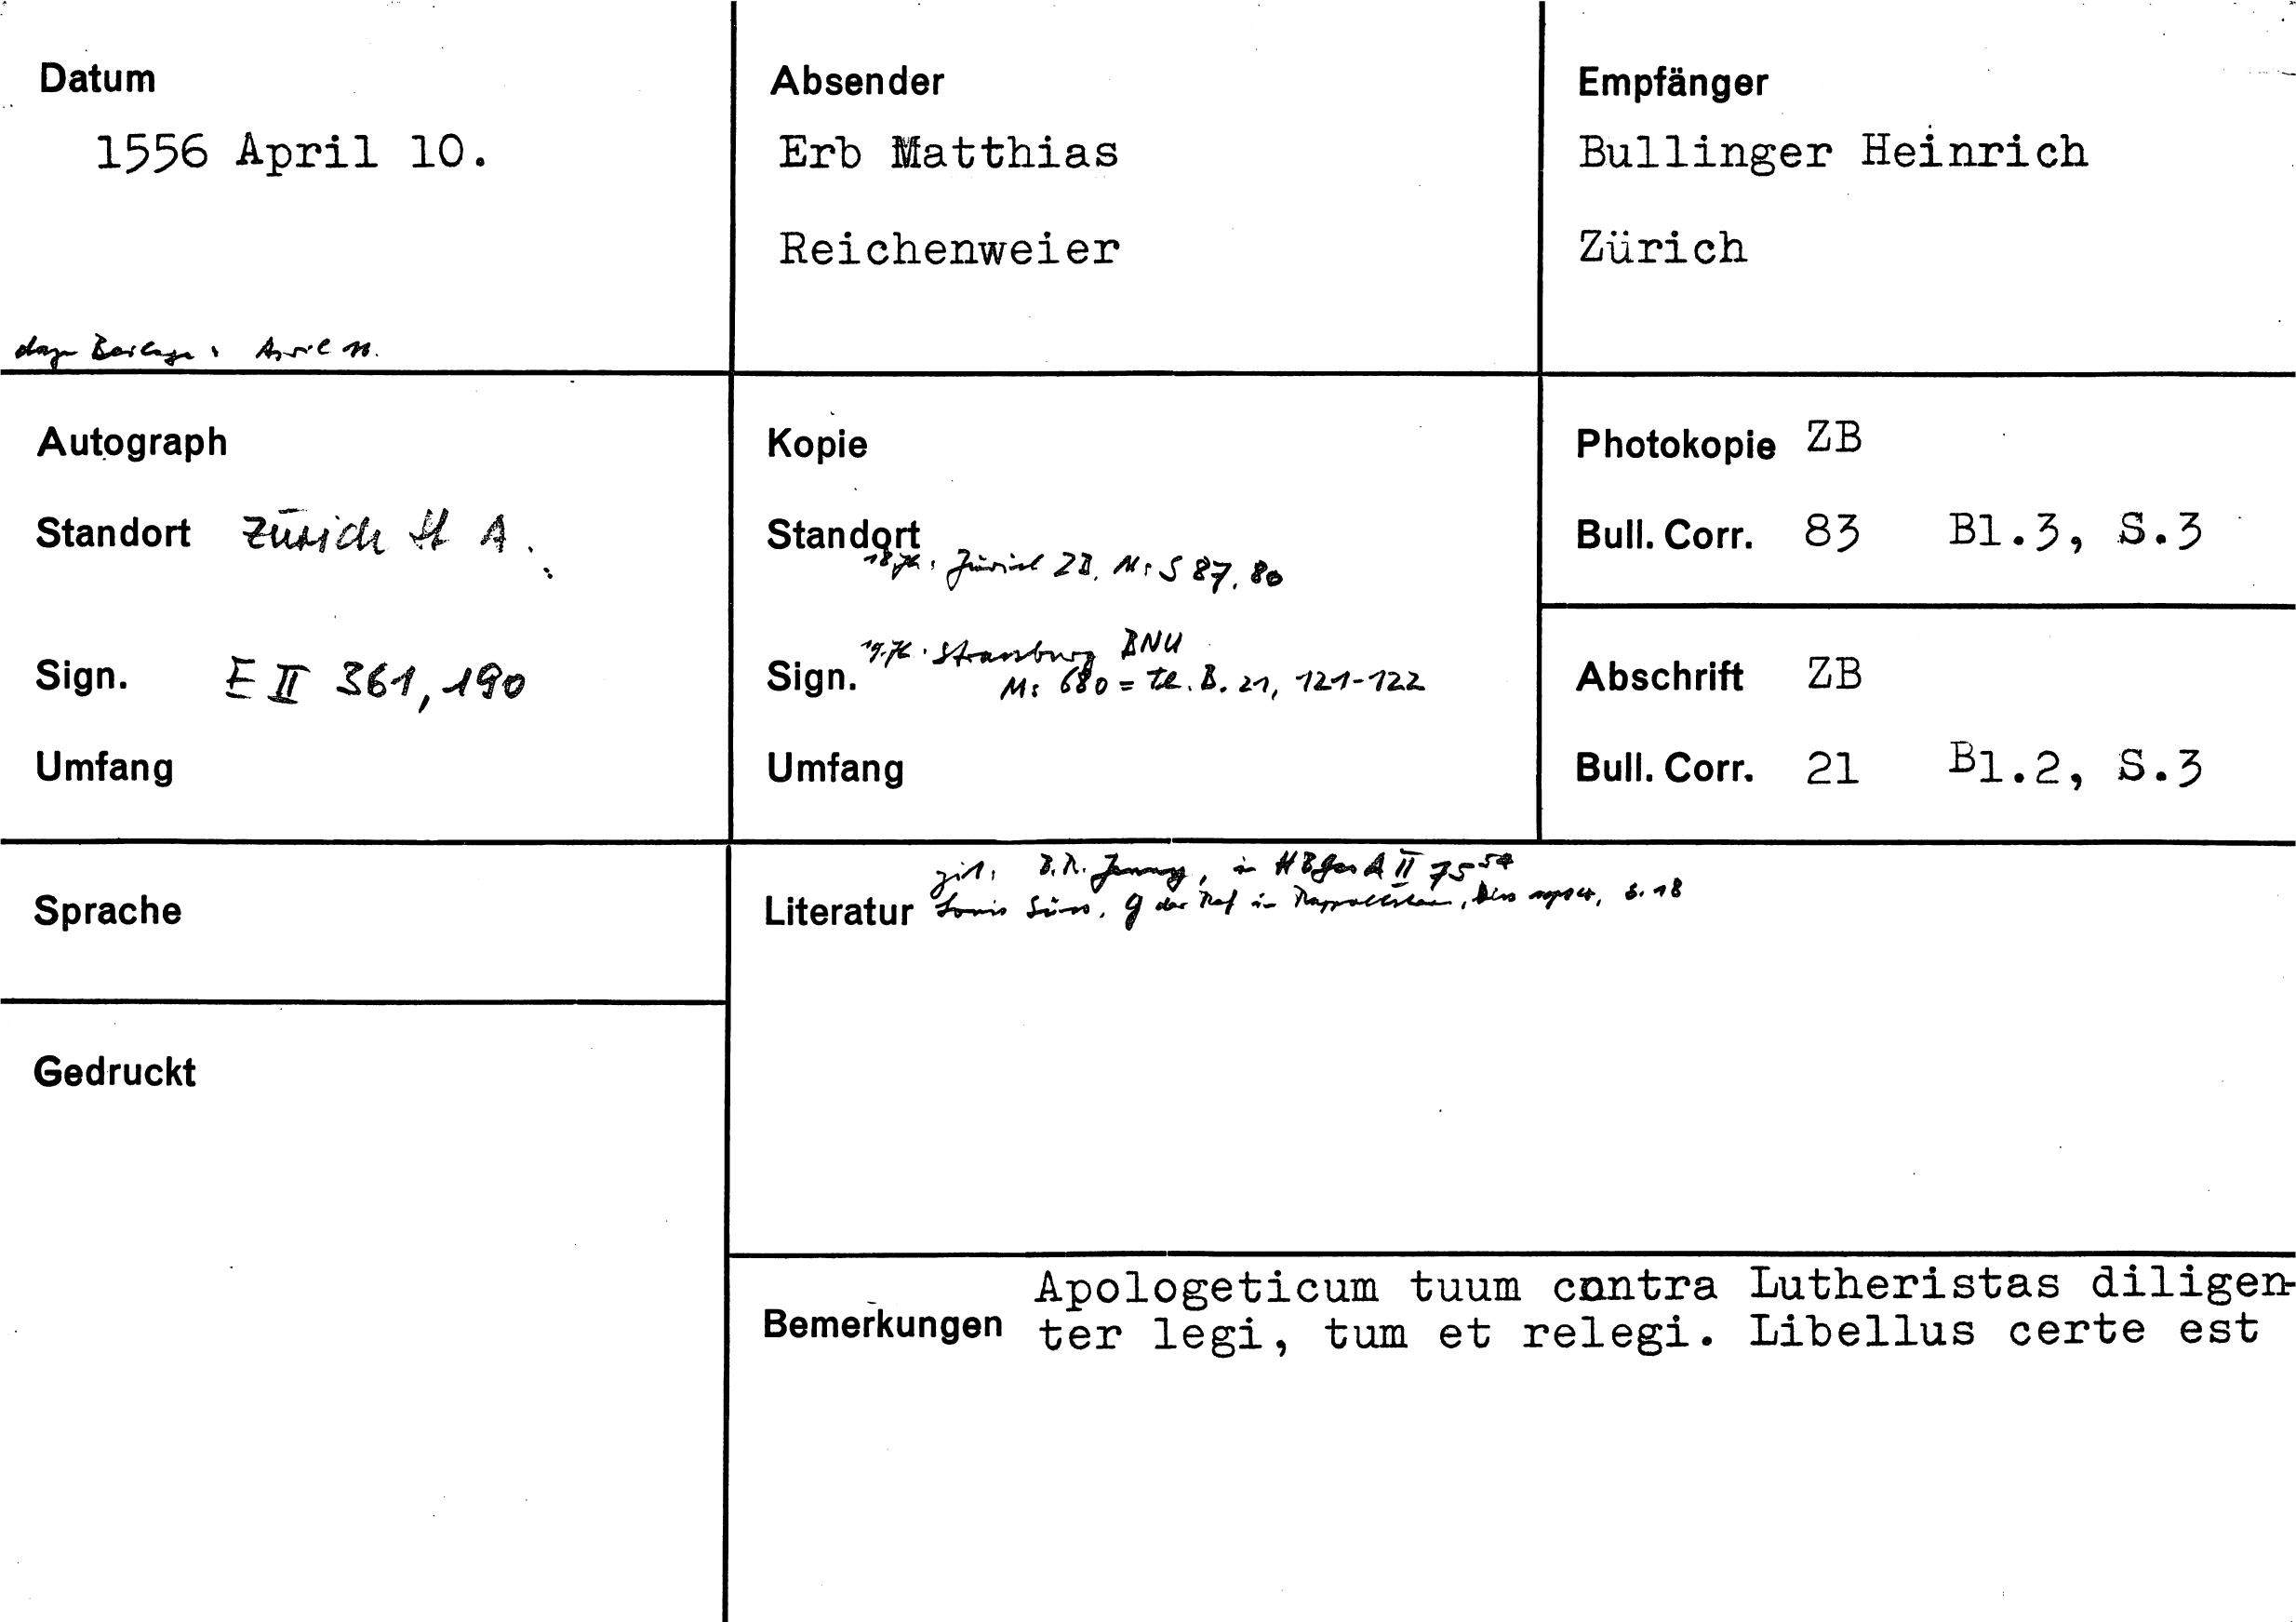 Datum
1556 April 10.
dazu Beilage: April 10.
Absender
Erb Matthias
Reichenweier
Empfänger
Bullinger Heinrich
Zürich
Autograph
Standort Zürich St A.
Sign. E II 361, 190
Umfang
Kopie
Standort
18. Jh. Zürich ZB, Ms S 87, 80
Sign. 19. Jh. Strassburg BNU
Ms 680 = Th. B. 21, 121-122
Umfang
Photokopie ZB
Bull. Corr. 83 Bl.3, S.3
Abschrift ZB
Bull. Corr. 21 Bl.2, S.3
Sprache
Gedruckt
zit. B.R. Jenny, in HBGesA II 75 54
Literatur Louis Süss, G der Ref in Rappoltstein, S. 18
Bemerkungen Apologeticum tuum contra Lutheristas diligen-
ter legi, tum et relegi. Libellus certe est